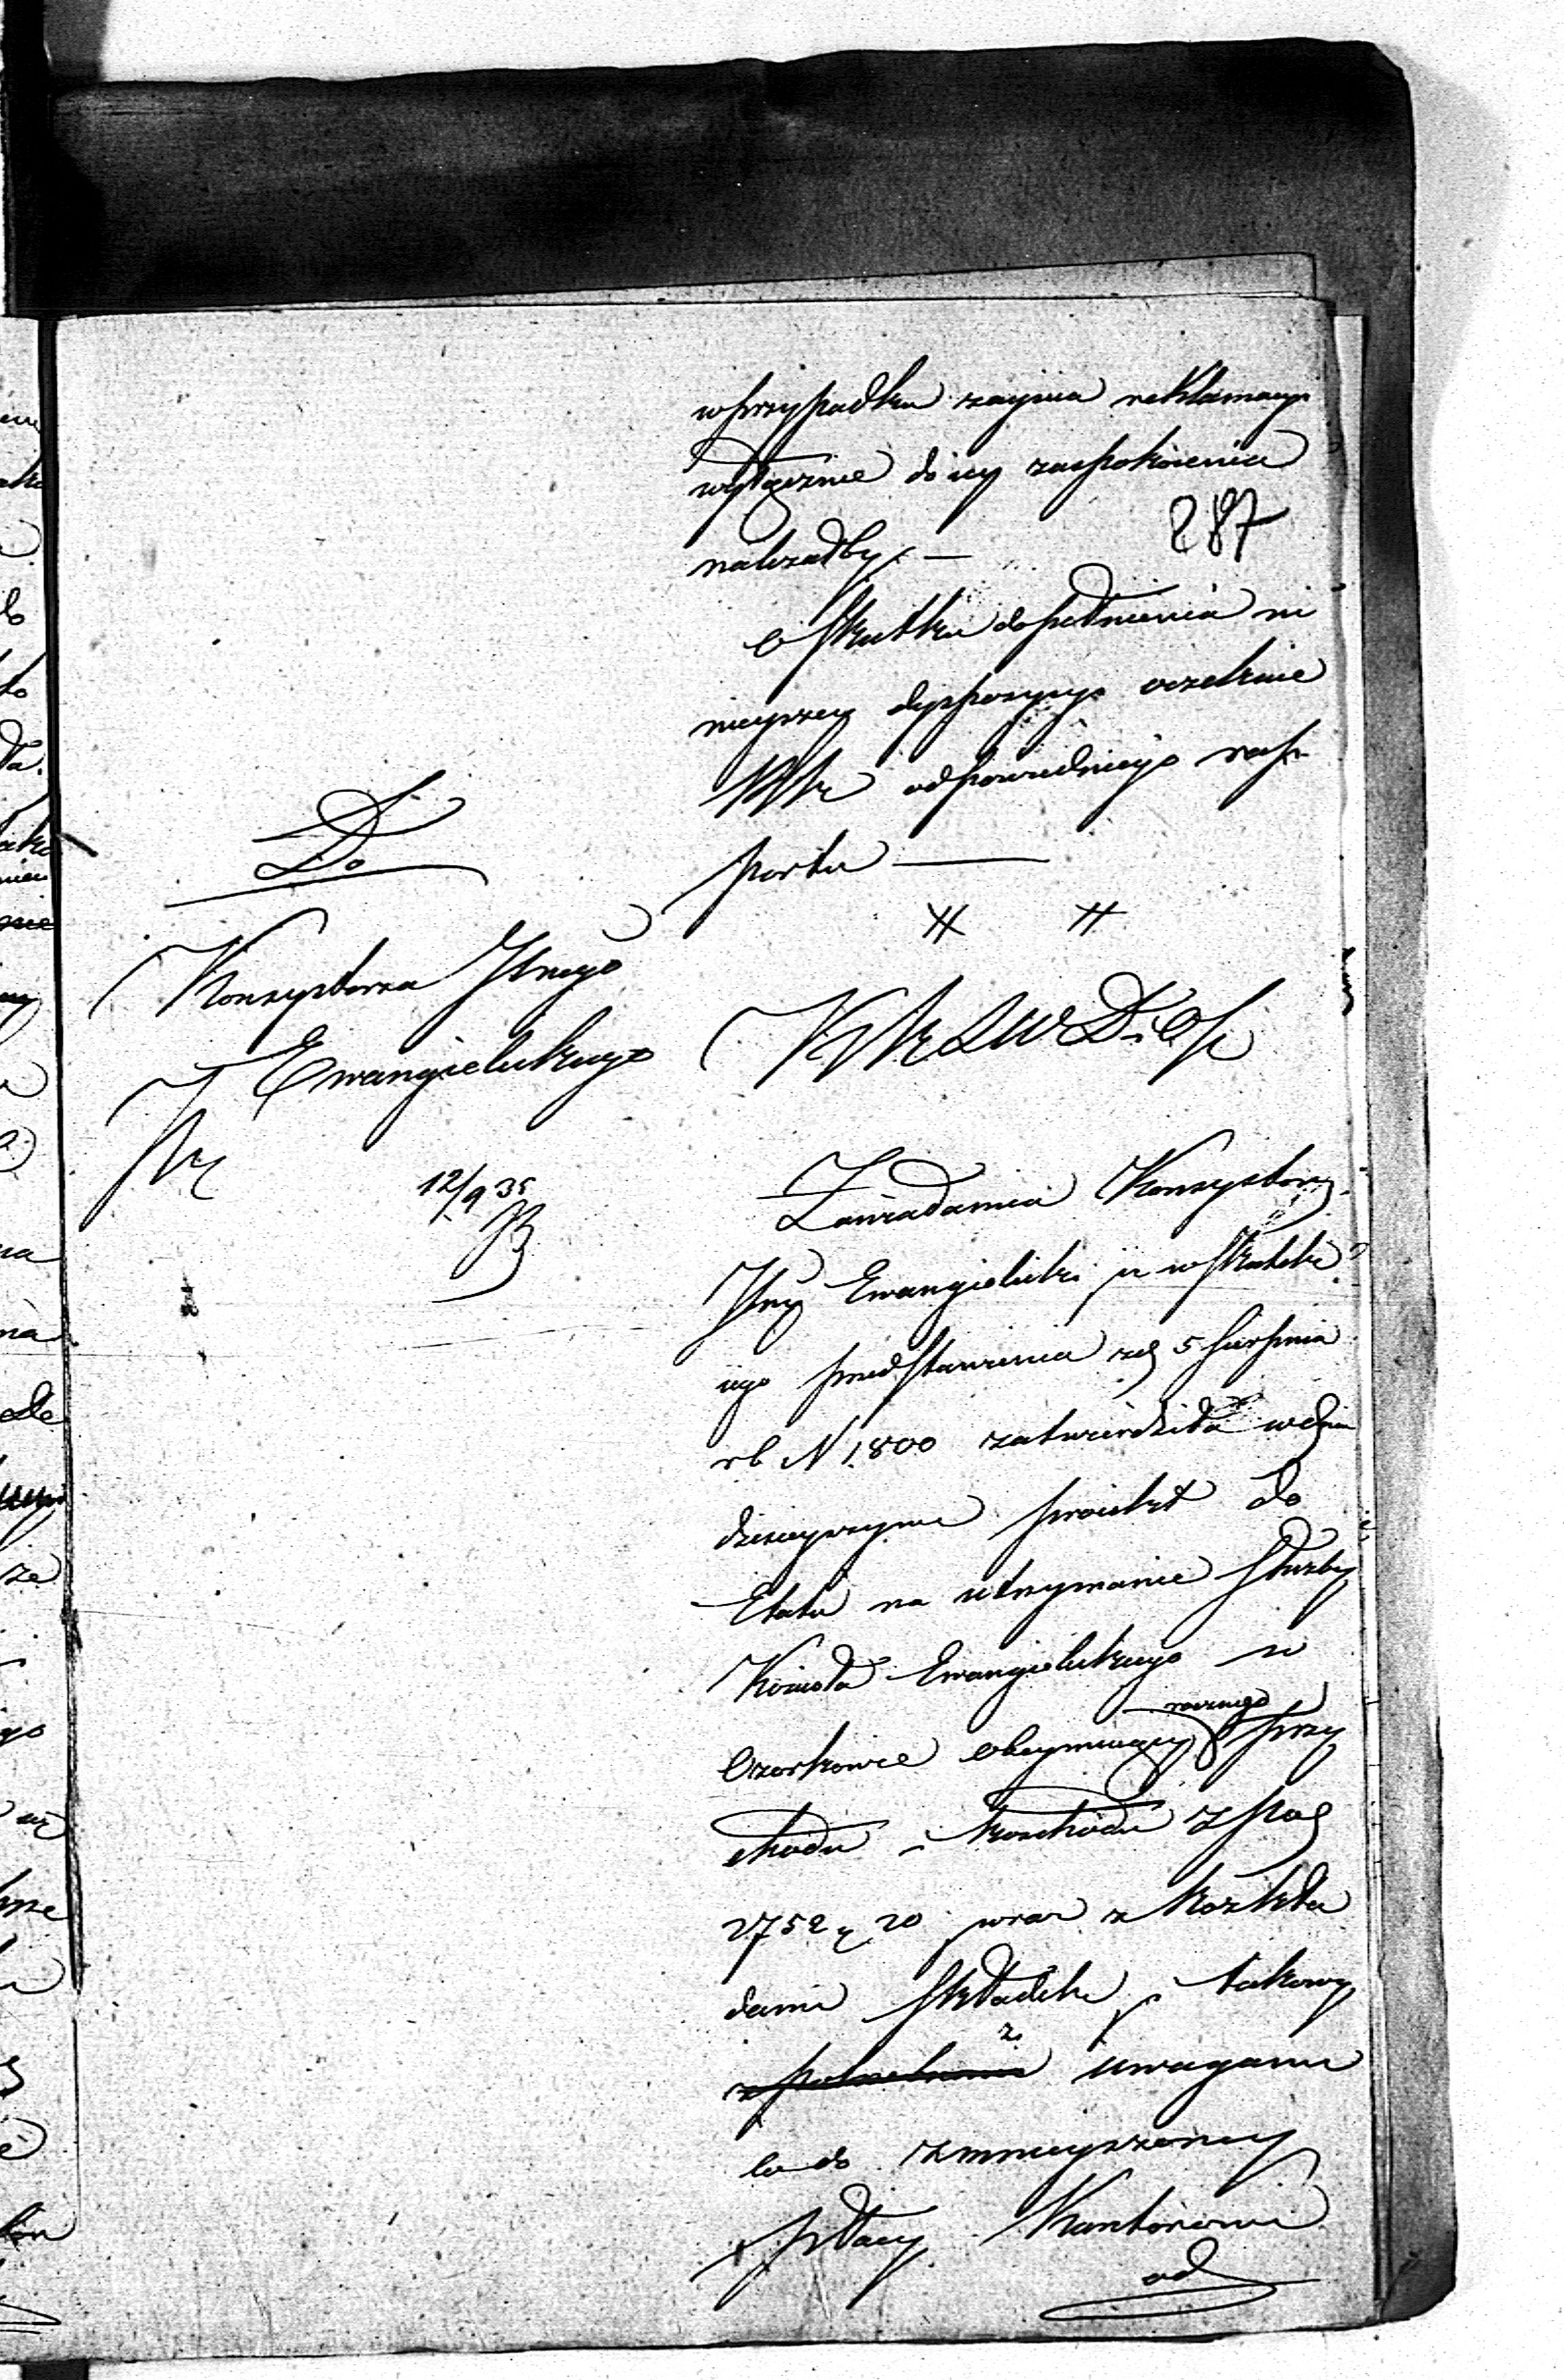 w przypadku zajścia reklamacyi
wyłącznie do iey zaspokoienia
należałby. —
287
O skutku dopełnienia ni
nieyszey dyspozycyi oczekuie
KRz odpowiedniego rap
portu —
Do
Konsystorza Jlnego
Ewangielickiego
12/9 35
KRz S W D i O P
Zawiadamia Konsystorz
Jlny Ewangielicki iż w skutek
iego przedstawienia z d 5 Sierpnia
r b N 1800 zatwierdziła w dniu
dzisieyszym proiekt do
Etatu na utrzymanie Służby
Kościoła Ewangielickiego w
Ozorkowie obeymuiący rocznego przy
chodu i rozchodu złpol
2752 g 20 wraz z rozkła
dami składek i takowy
z uwagami
co do zmnieyszoney
płacy Kantorowi
od